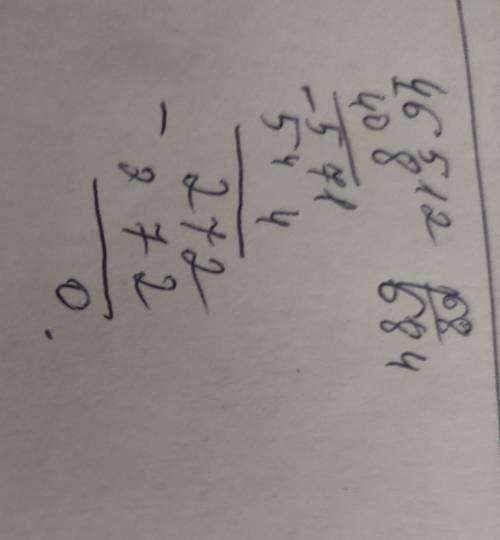 46512 68
408 684
-571
544
272
-
272
0.